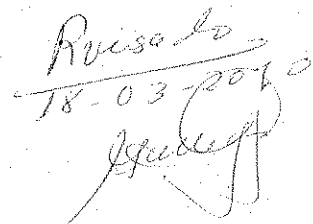 Rvisado
18-03-2010